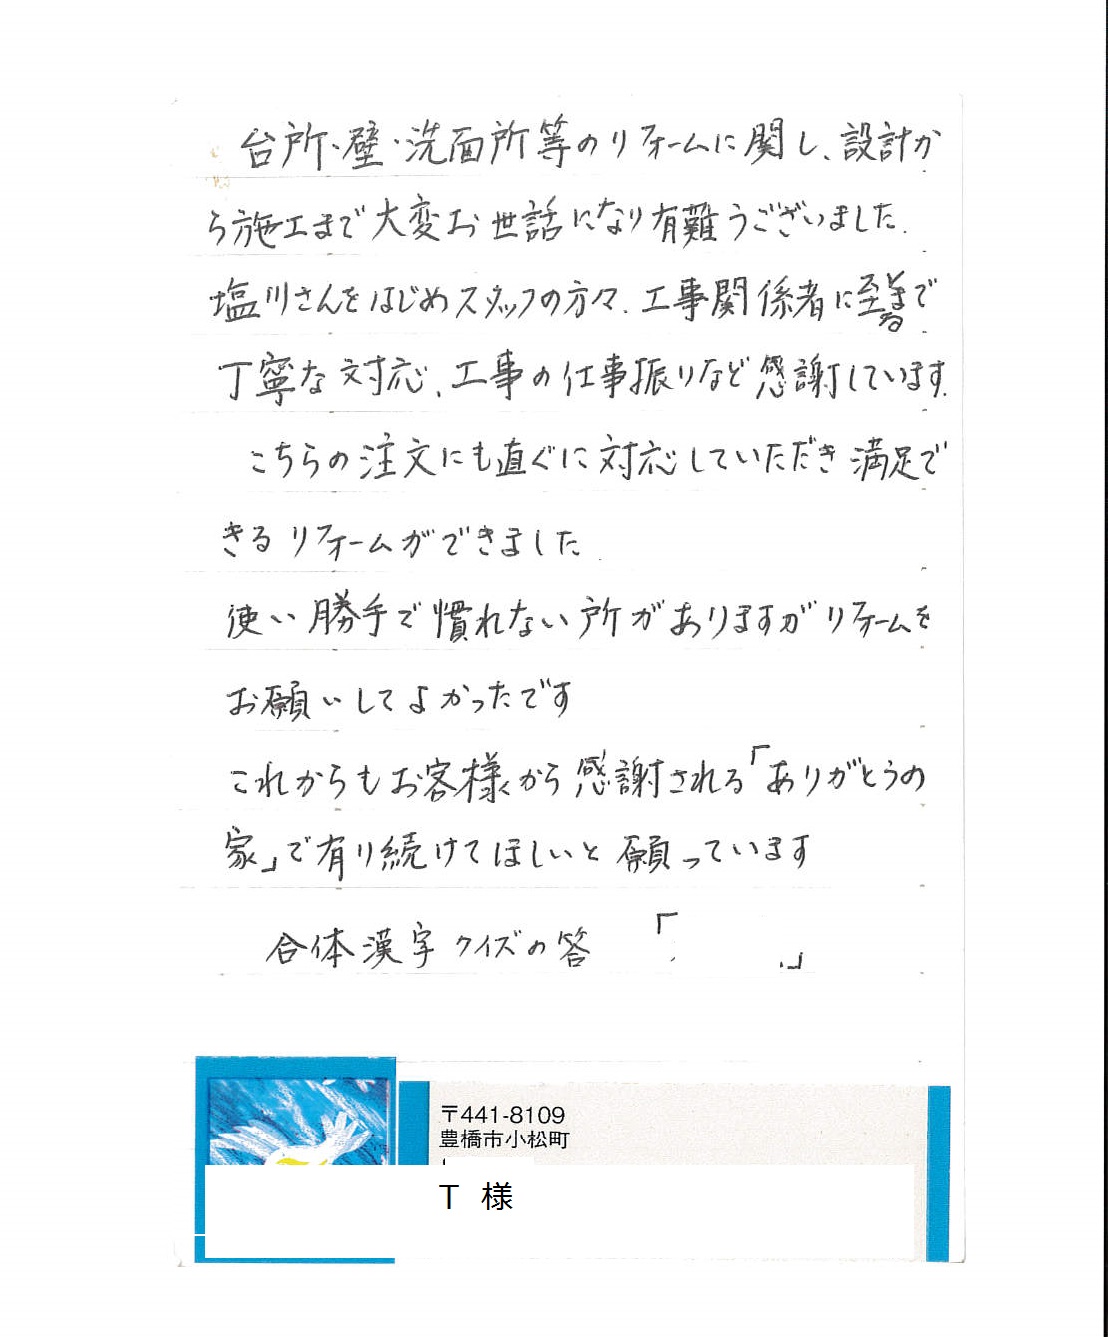 台所・壁・洗面所等のリフォームに関し、設計か
ら施工まで大変お世話になり有難うございました.
塩川さんをはじめスタッフの方々、工事関係者に至るまで
丁寧な対応、工事の仕事振りなど感謝しています.
こちらの注文にも直ぐに対応していただき満足で
きるリフォームができました
使い勝手で慣れない所がありますがリフォームを
お願いしてよかったです
これからもお客様から感謝される「ありがとうの
家」で有り続けてほしいと願っています
合体漢字クイズの答 「 」
〒441-8109
豊橋市小松町
T 様